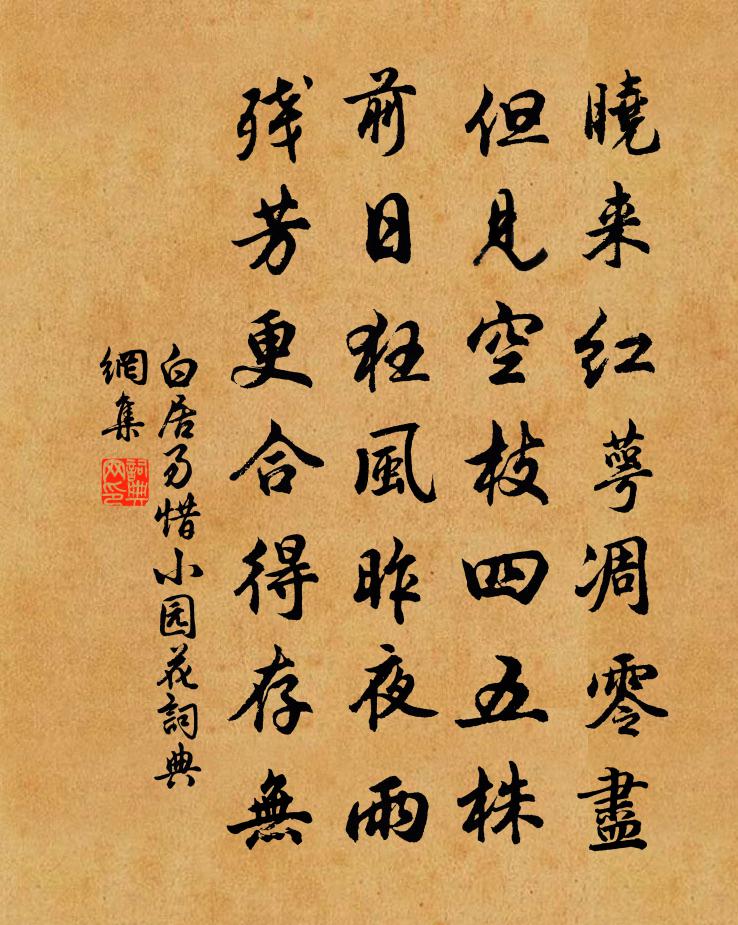 曉来红萼凋零盡
但見空枝四五株
前日狂風昨夜雨
残芳更合得存無
白居易惜小园花詞典
網集
詞典
网印